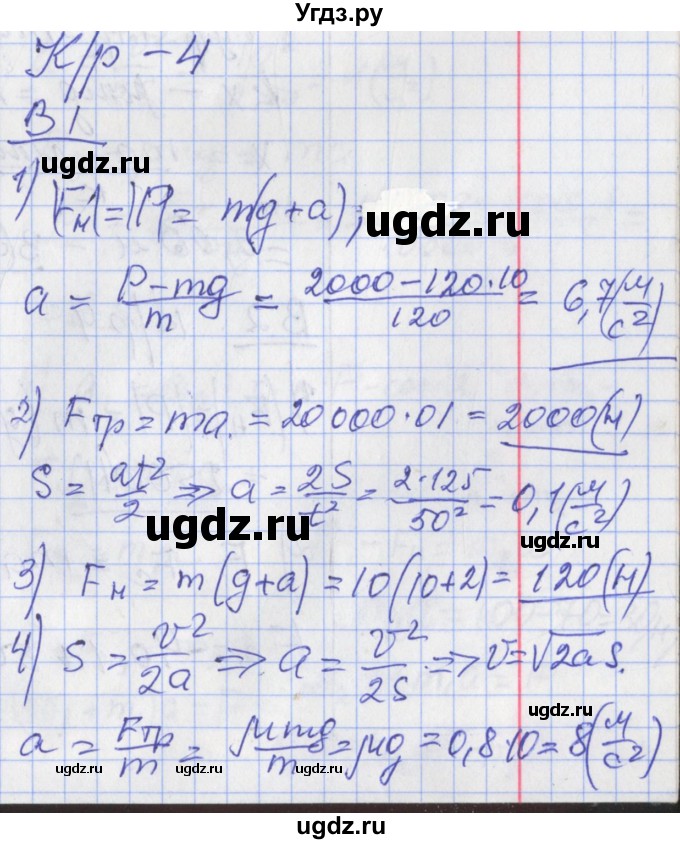 Угдз.ру
К/р – 4
В 1
ugdz.ru
1) |Fн| = |P| = m(g+a);
ugdz.ru
a = (P – mg)/m = (2000 – 120·10)/120 = 6,7 (м/с²)
2) Fтр = ma = 20000·01 = 2000 (н)
S = at²/2 ⇒ a = 2S/t² = 2·125/50² = 0,1 (м/с²)
ugdz.ru
ugdz.ru
3) Fн = m(g+a) = 10(10+2) = 120 (н)
4) S = v²/2a ⇒ a = v²/2S ⇒ v = √2aS.
ugdz.ru
a = Fтр/m = μmg/m = μg = 0,8·10 = 8 (м/с²)
ugdz.ru ugdz.ru ugdz.ru ugdz.ru ugdz.ru
ugdz.ru